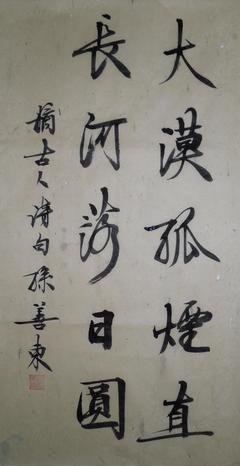 大漠孤煙直
長河落日圓
摘古人詩句孫善東